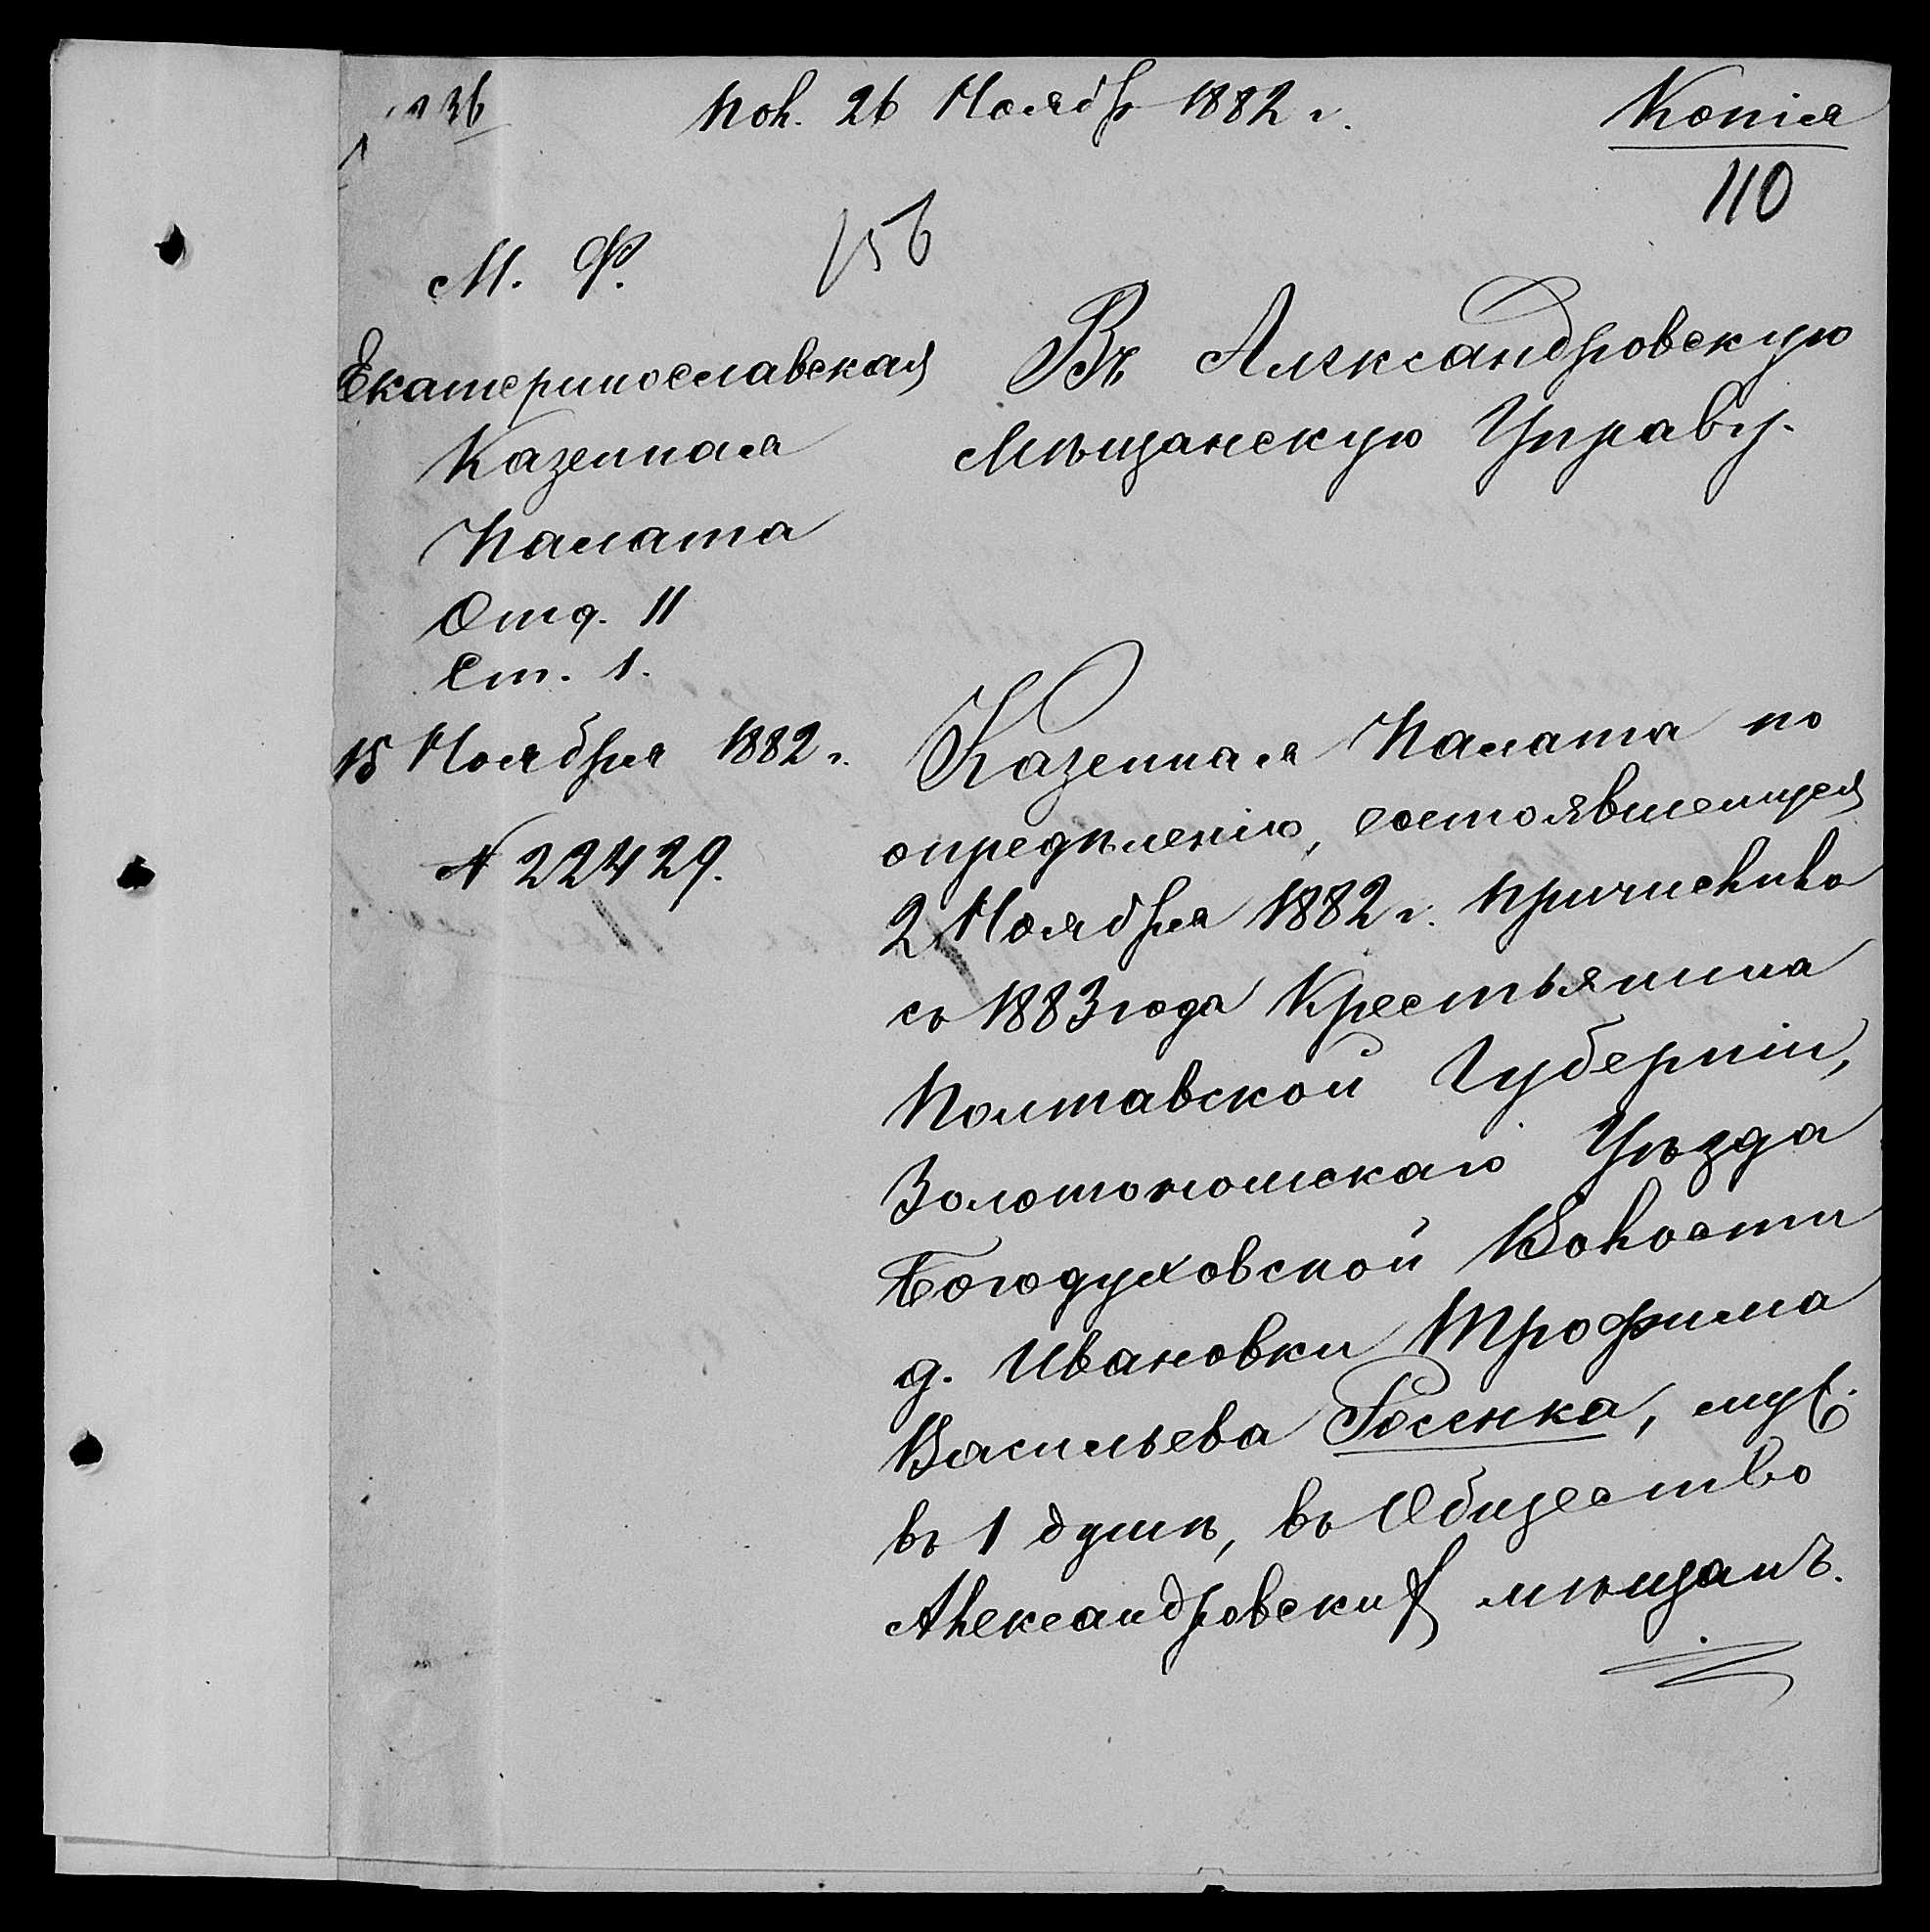 136
Пол. 26 Ноябр 1882 г.
Копія
110
156
М. Ф.
Екатеринославская
Казенная
Палата
Отд. II
Ст. 1.
15 Ноября 1882 г.
№ 22429.
Въ Александровскую
Мѣщанскую Управу.
Казенная Палата по
опредѣленію, состоявшемуся
2 Ноября 1882 г. причислила
съ 1883 года Крестьянина
Полтавской Губерніи,
Золотоношскаго Уѣзда
Богодуховской Волости
д. Ивановки Трофима
Васильева, муж.
въ 1 душѣ, въ Общество
Александровских мѣщанъ.